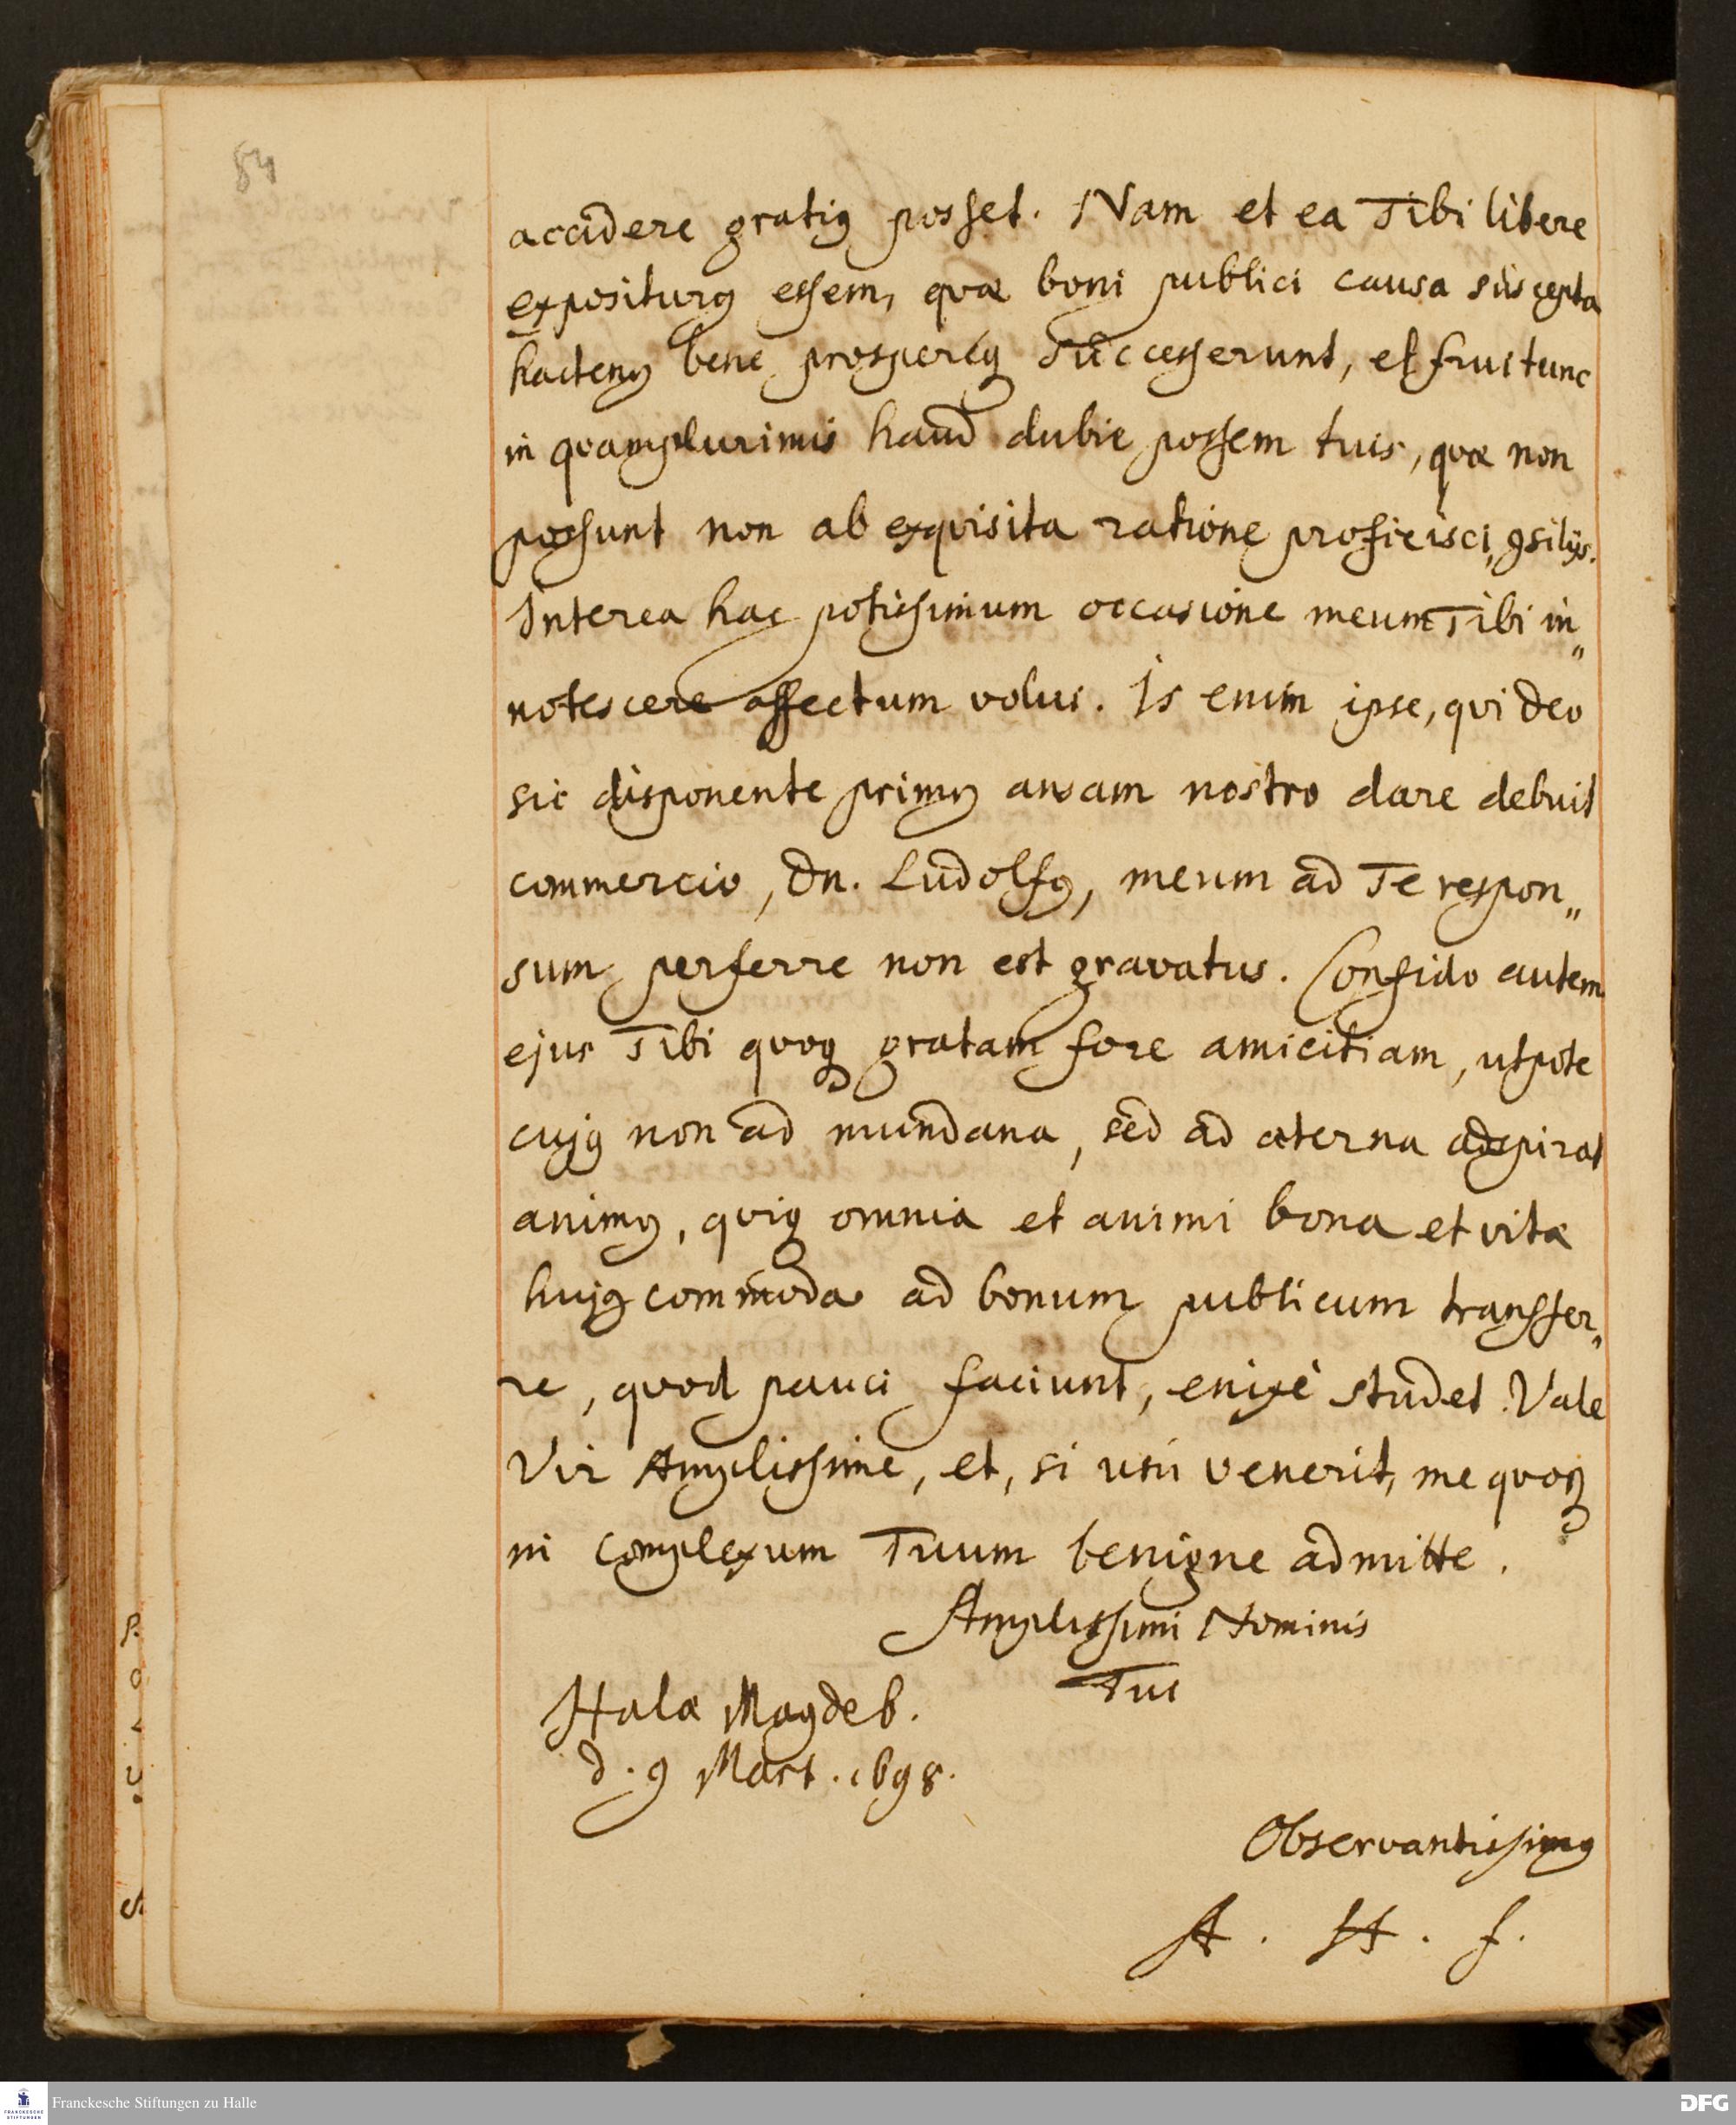 84
accidere gratiꝰ posset. Nam et ea Tibi libere
expositurꝰ essem, qvæ boni publici causa suscepta
hactenꝰ bene prosperéqꝫ successerunt, et frui tunc
in qvamplurimis haud dubie possem tuis, qvæ non
possunt non ab exqvisita ratione proficisci, ꝯsilijs.
Interea hac potissimum occasione meum Tibi in„
notescere affectum volui. Is enim ipse, qvi Deo
sic disponente primꝰ ansam nostro dare debuit
commercio, Dn. Ludolfꝰ, meum ad Te respon„
sum perferre non est gravatus. Confido autem
ejus Tibi qvoqꝫ gratam fore amicitiam, utpote
cujꝰ non ad mundana, sed ad æterna adspirat
animꝰ, qviqꝫ omnia et animi bona et vitæ
hujꝰ commoda ad bonum publicum transfer„
re, qvod pauci faciunt, enixè studet. Vale
Vir Amplissime, et, si usu venerit, me qvoqꝫ
in complexum Tuum benigne admitte.
Amplissimi Nominis
Tui
Halæ Magdeb.
d. 9 Mart. 1698.
Observantissimꝰ
A. H. F.
Franckesche Stiftungen zu Halle
DFG